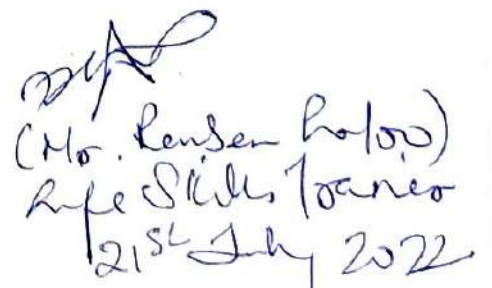 (Mr. Rensen
Life Skills Trainer
21st July 2022